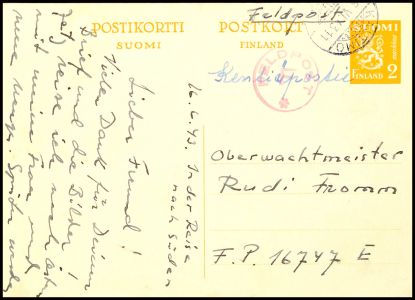 Feldpost
POSTIKORTTI
SUOMI
POSTKORT
FINLAND
SUOMI
FINLAND 2
FELDPOST
Kenttäpostia
16.6.43. In der Reise
nach Süden
Lieber Freund!
Vielen Dank für Deinen
Brief und die Bilder!
Jetzt reise ich nach
mit meine Frau und
meine
Oberwachtmeister
Rudi Fromm
F.P. 16747 E